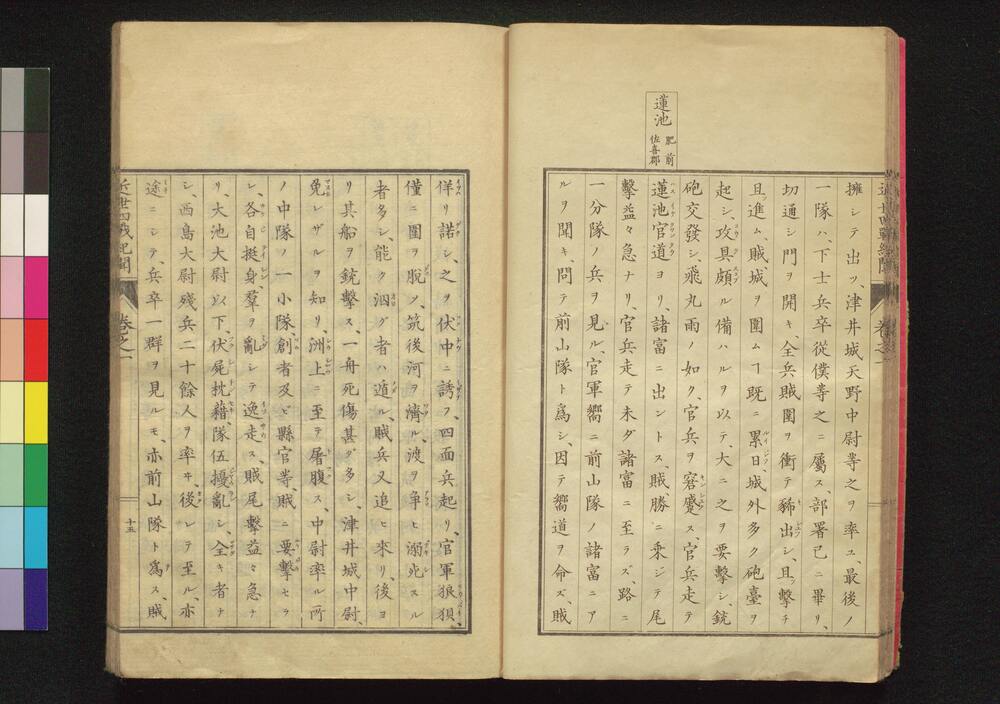 擁シテ出ツ、津井城天野中尉等之ヲ率ユ、最後ノ
一隊ハ、下士兵卒從僕等之ニ屬ス、部署已ニ畢リ、
切通シ門ヲ開キ、全兵賊圍ヲ衝テ豨出シ、且ツ擊チ
且ツ進ム、賊城ヲ圍ムヿ既ニ累日、城外多ク砲臺ヲ
起シ、攻具頗ル備ハルヲ以テ、大ニ之ヲ要擊シ、銃
砲交發シ、飛丸雨ノ如ク、官兵ヲ窘蹙ス、官兵走テ
蓮池官道ヨリ、諸富ニ出ントス、賊勝ニ乘ジテ尾
擊益々急ナリ、官兵走テ未ダ諸富ニ至ラズ、路ニ
一分隊ノ兵ヲ見ル、官軍嚮ニ前山隊ノ諸富ニア
ルヲ聞キ、問テ前山隊ト爲シ、因テ嚮道ヲ命ズ、賊
蓮池
肥前
佐喜郡
佯リ諾シ、之ヲ伏中ニ誘フ、四面兵起リ、官軍狼狽、
僅ニ圍ヲ脫ノ、筑後河ヲ濟ル、渡ヲ爭ヒ溺死スル
者多シ、能ク泅グ者ハ遁ル、賊兵又追ヒ來リ、後ヨ
リ其船ヲ銃擊ス、一舟死傷甚ダ多シ、津井城中尉、
免レザルヲ知リ、洲上ニ至テ屠腹ス、中尉率ル所
ノ中隊ノ一小隊、創者及ビ縣官等、賊ニ要擊セラ
レ、各自挺身、羣ヲ亂シテ逸走ス、賊尾擊益々急ナ
リ、大池大尉以下、伏屍枕藉、隊伍擾亂シ、全キ者ナ
シ、西島大尉殘兵二十餘人ヲ率ヰ、後レテ至ル、亦
途ニシテ、兵卒一群ヲ見ルモ、亦前山隊ト爲ス、賊
近世四戰紀聞
卷之一
十五